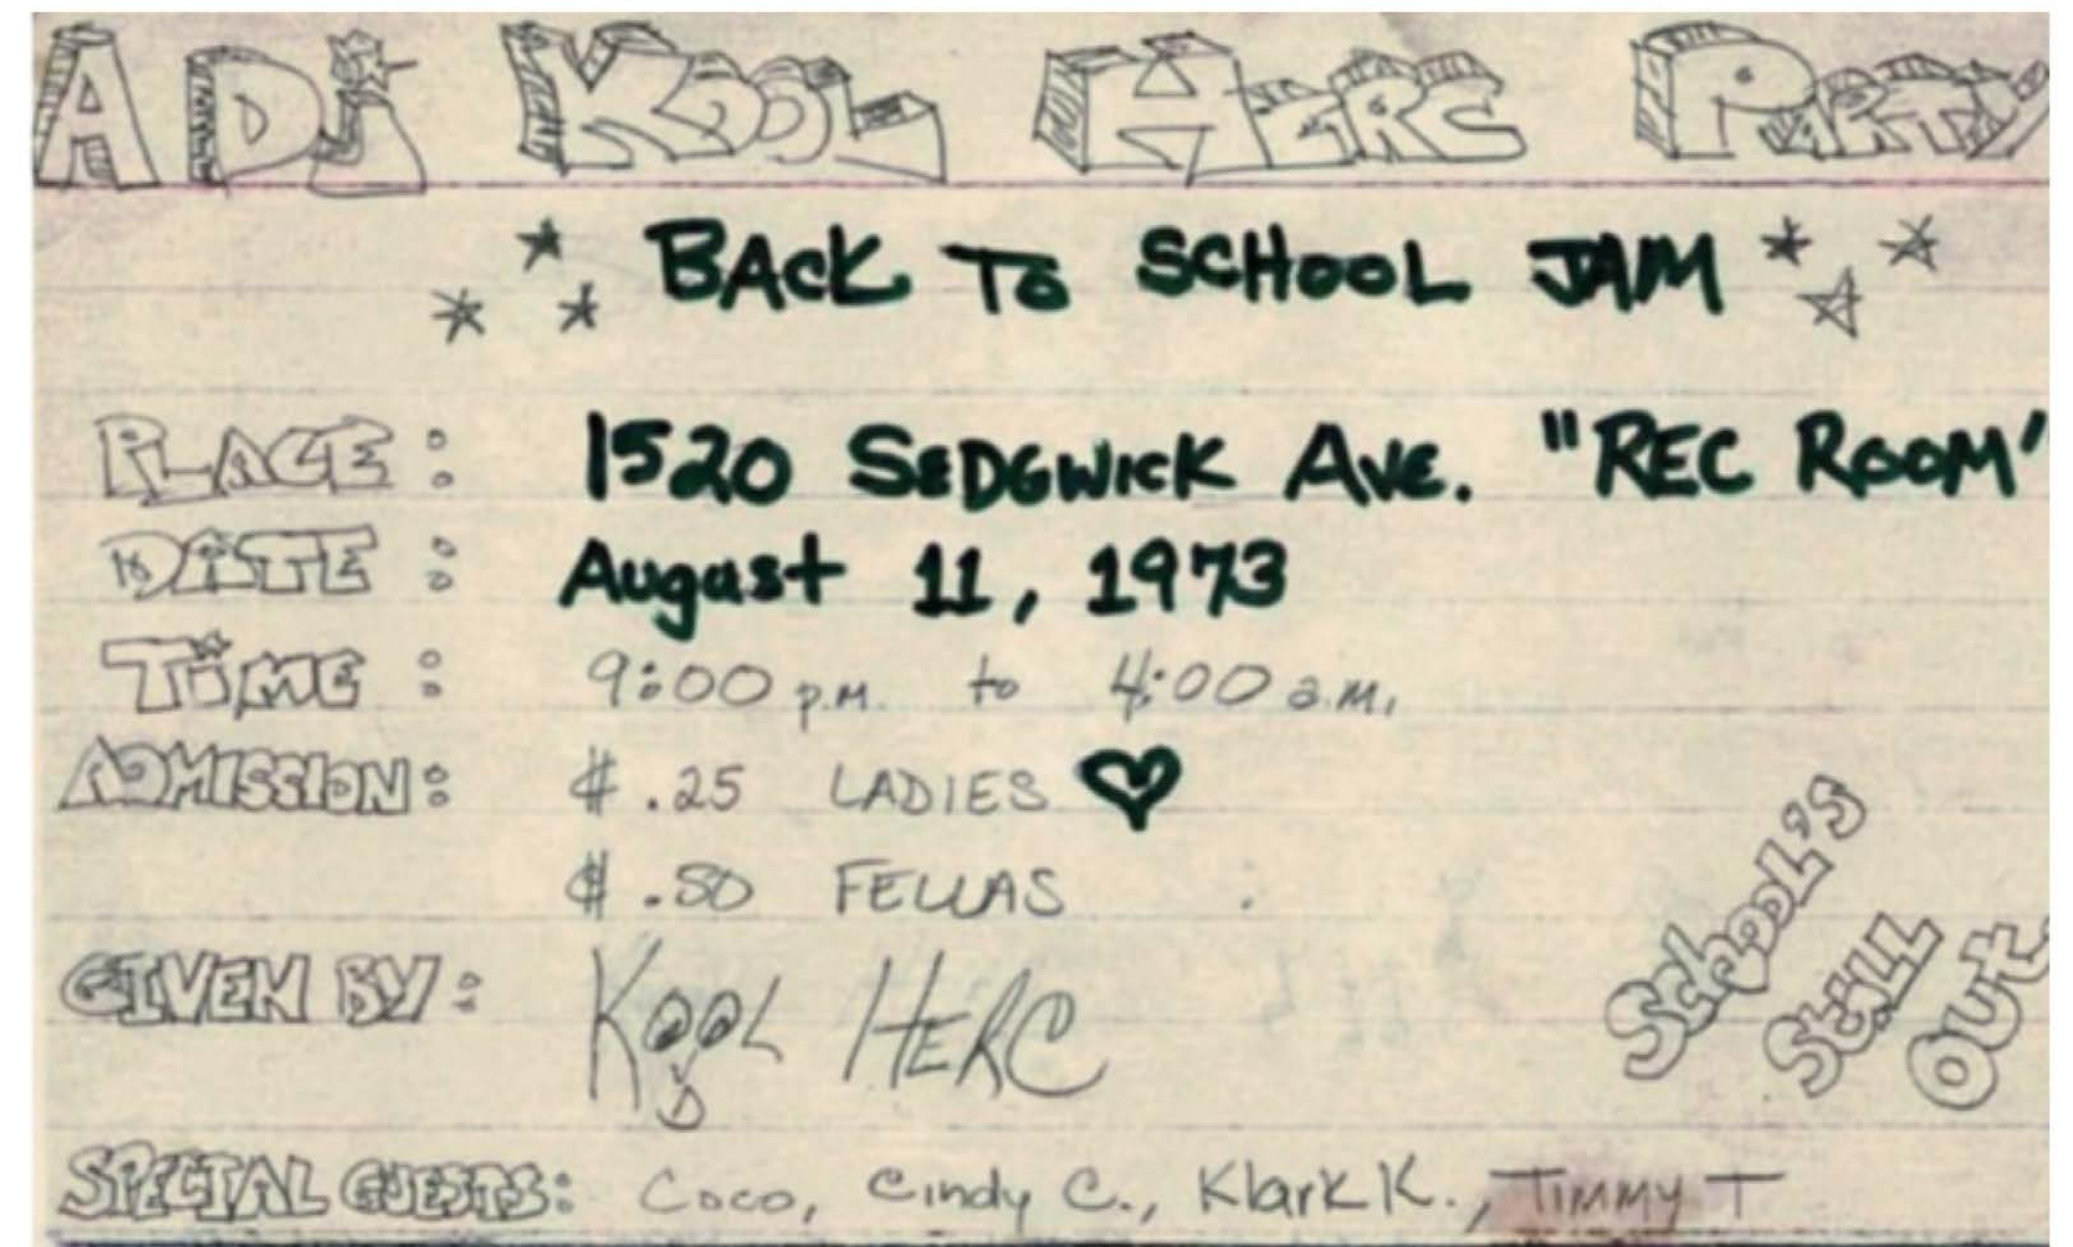 A DJ KOOL HERC PARTY
BACK TO SCHOOL JAM
PLACE: 1520 SEDGWICK AVE. "REC ROOM"
DATE: August 11, 1973
TiME: 9:00 p.m. to 4:00 a.m.
ADMISSION: $.25 LADIES
$.50 FELLAS
GIVEN BY: KOOL HERC
SCHOOL'S
STiLL
OUT
SPECIAL GUESTS: Coco, Cindy C., Klark K., TIMMY T